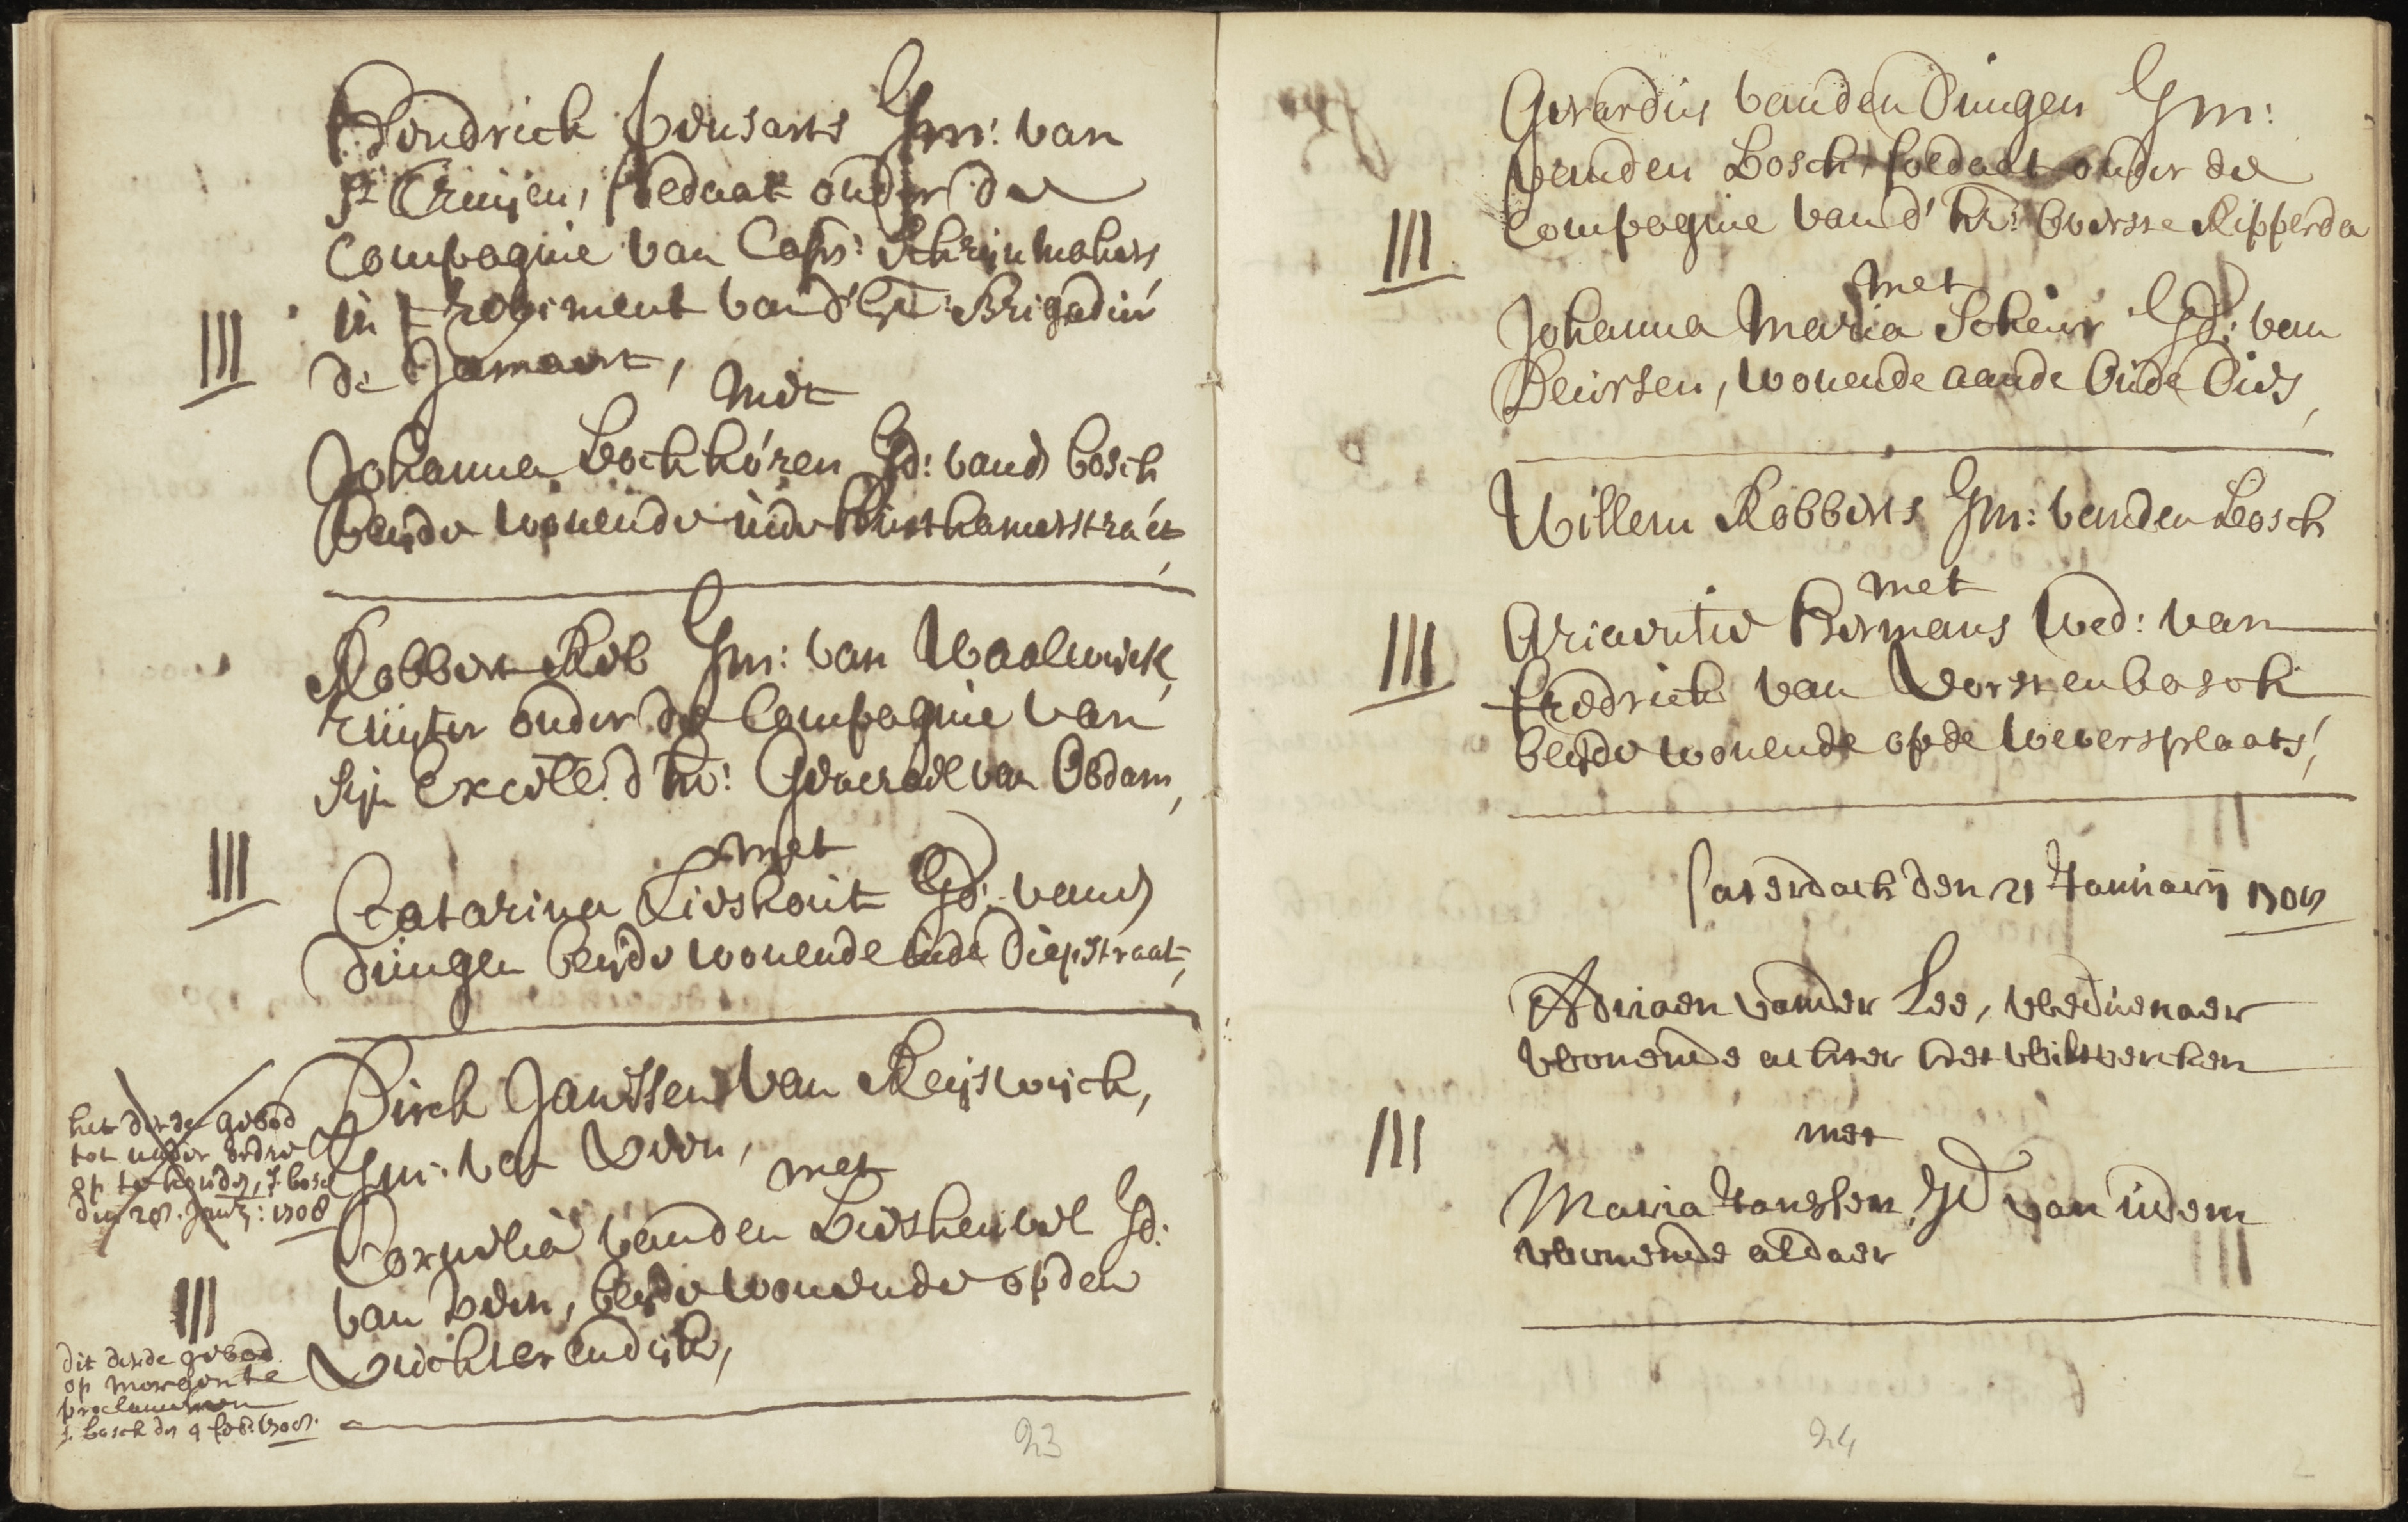 Hendrick Geusarts Jm: van
St Truijen, soldaat onder de
Compagnie van Capn: Schrijnmakers
in t regiment van d'hr: Brigadier
III
de Jamart,
met
Johanna Bockhoren Jd: vand bosch
beyde wonende inde Hinthamerstraet,
Robbert Reb Jm: van Waalwijck,
ruijter onder de Compagnie van
Sijn Excelle. d hr: Generael van Obdam,
III
met
Catarina Lieshout Jd: vand
dungen beyde wonende inde Diepstraat,
Dirck Janssen van Reijswijck,
Jm: van Uden,
met
Cornelia vanden Biesheuvel Jd:
van Uden, beyde wonende op den
Vuchterendijk,
het derde gebod
tot nader order
op te houden, s bosch
den 28. Jan: 1708
III
dit derde gebod
op morgen te
proclameren
s. bosch den 4 feb: 1708.
23
Gerardus vanden Dungen Jm:
vanden Bosch, soldaet onder de
Compagnie van d' hr: Overste Ripperda
III
met
Johanna Maria Scheur Jd: van
Deursen, wonende aande Oude Dies,
Willem Robberts Jm: vanden Bosch
met
III
Ariaentie Hermans Wed: van
fredrick van Vorstenbosch
beyde wonende op de Weversplaats,
Saterdach den 21 Januarij 1708
Adriaen vander Lee, Weduenaer
Woonende achter het Wiltvercken
III
met
Maria Janssen Jd van Udem
Woonende aldaer
24